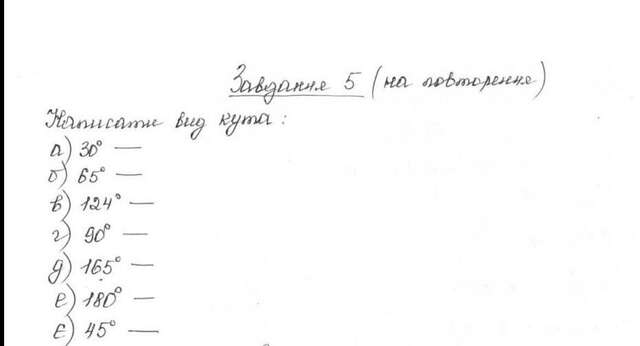 Завдання 5 (на повторення)
Написати вид кута:
а) 30° —
б) 65° —
в) 124° —
г) 90° —
д) 165° —
е) 180° —
є) 45° —